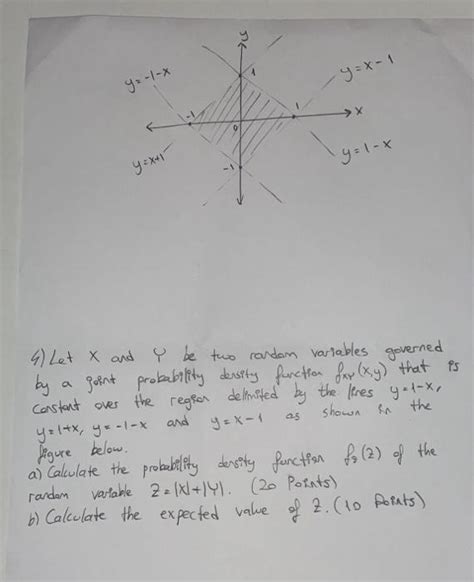 y
y=-1-x
1
y=x-1
-1
0
1
x
y=x+1
-1
y=1-x
4) Let X and Y be two random variables governed
by a joint probability density function fxy(x,y) that is
constant over the region delimited by the lines y=1-x,
y=1+x, y=-1-x and y=x-1 as shown in the
figure below.
a) Calculate the probability density function fz(z) of the
random variable Z=|X|+|Y|. (20 Points)
b) Calculate the expected value of Z. (10 Points)